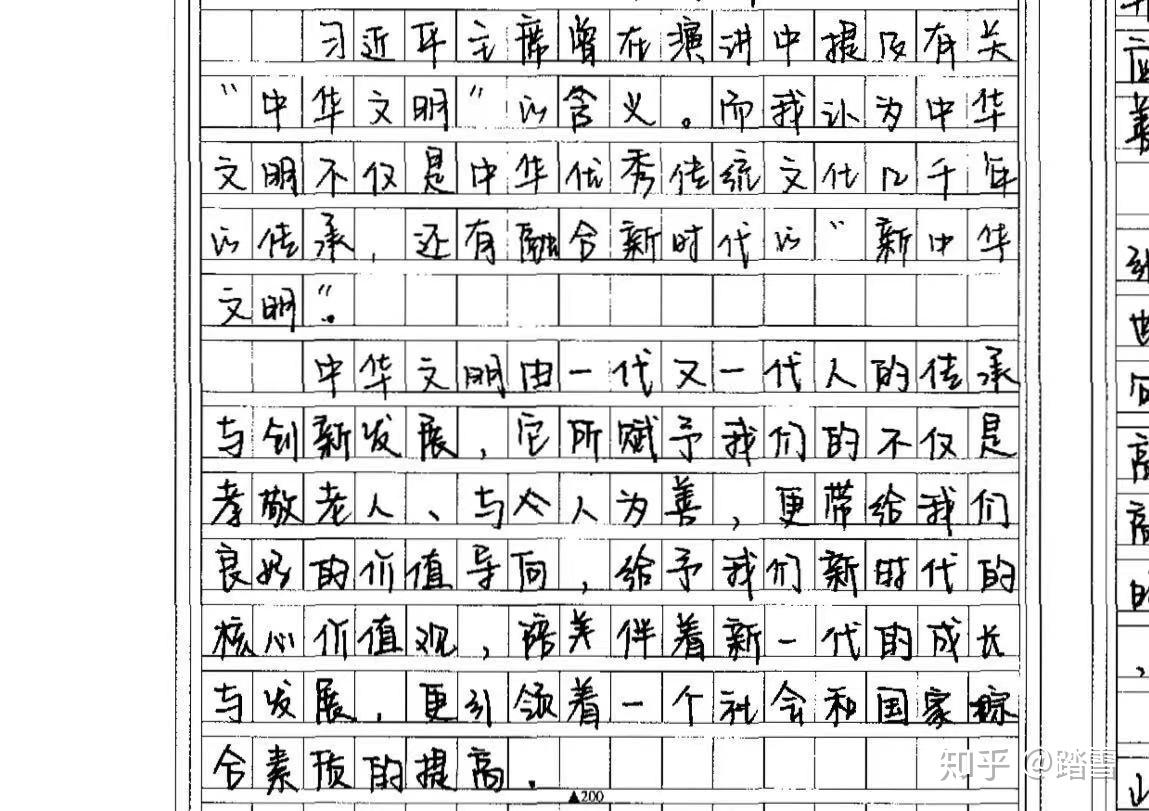 习近平主席曾在演讲中提及有关
“中华文明”的含义。而我认为中华
文明不仅是中华优秀传统文化几千年
的传承,还有融合新时代的“新中华
文明”。
中华文明由一代又一代人的传承
与创新发展,它所赋予我们的不仅是
孝敬老人、与人为善,更带给我们
良好的价值导向,给予我们新时代的
核心价值观,陪伴着新一代的成长
与发展,更引领着一个社会和国家综
合素质的提高.
▲200
知乎 @踏雪